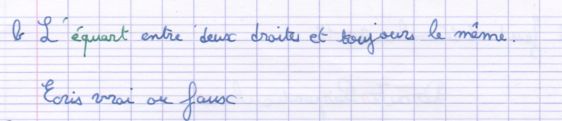 b L'équart entre deux droites et toujours le même.
Ecris vrai ou faux